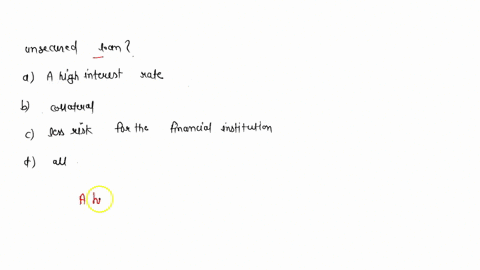 unsecured loan?
a) A high interest rate
b) collateral
c) less risk for the financial institution
d) all
A h